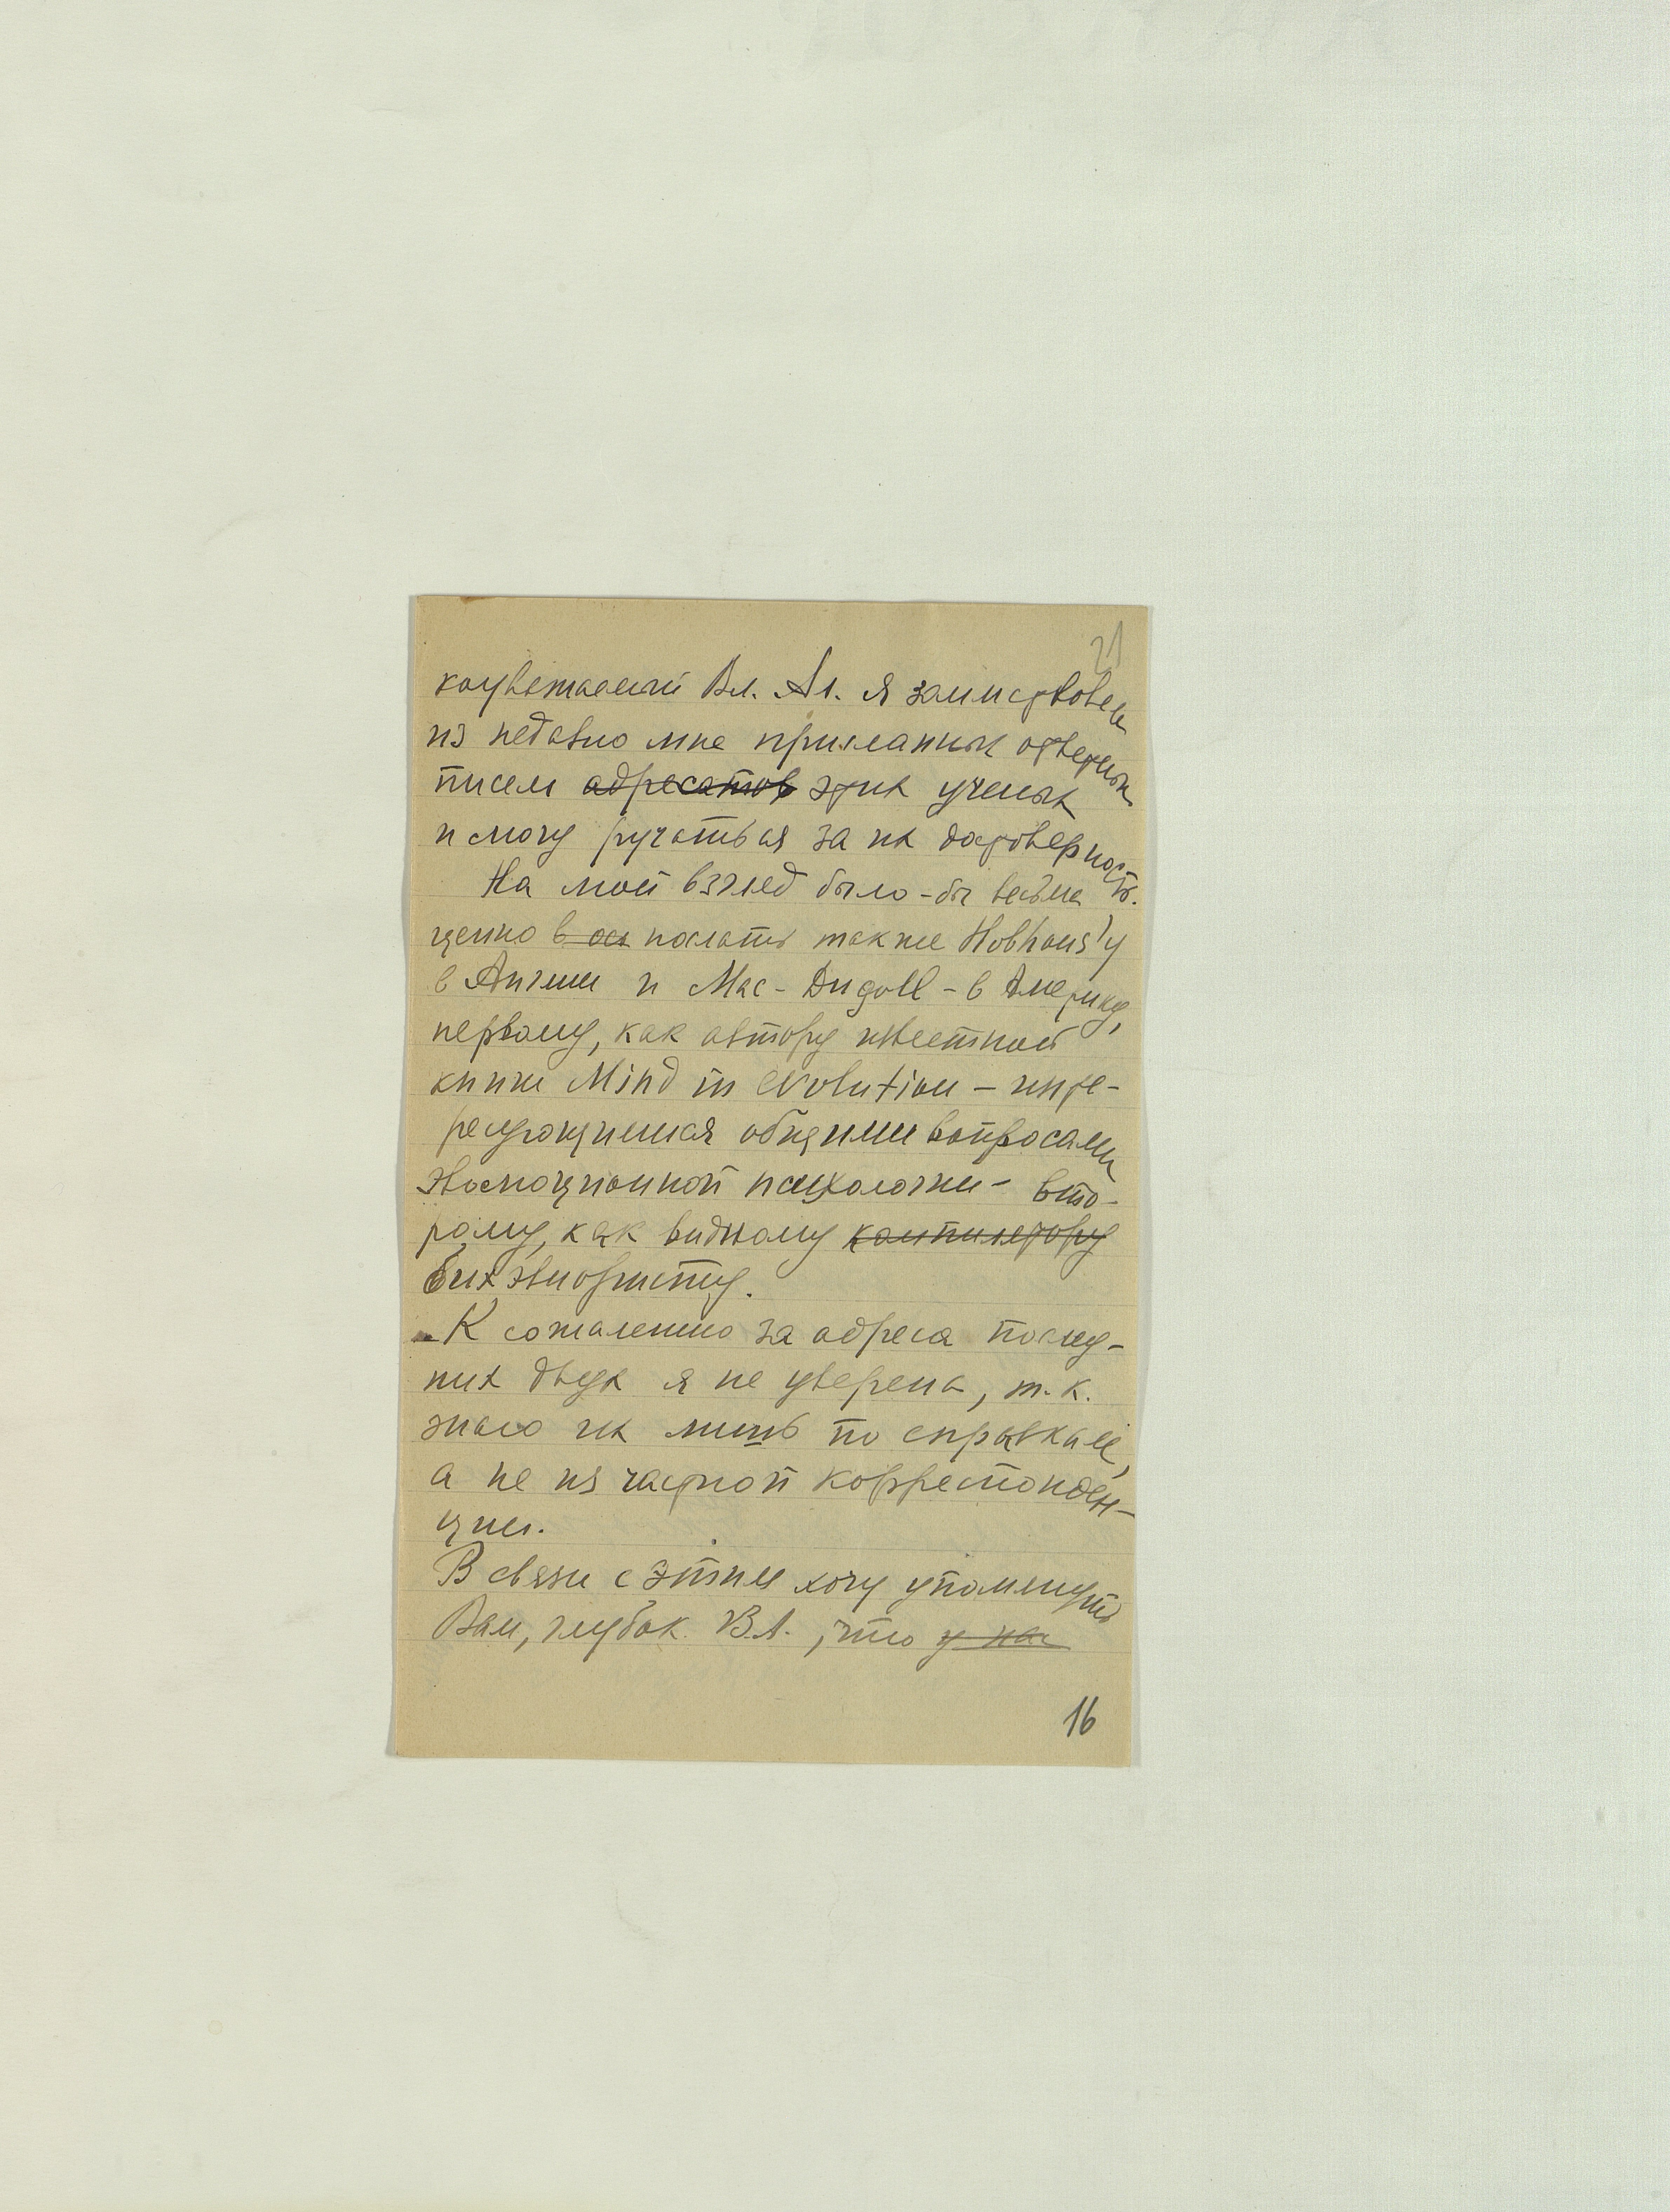 21
коуважаемый Вл. Ал. я заимствовала
из недавно мне присланных ответных
писем адресатов этих ученых
и могу ручаться за их достоверность.
На мой взгляд было-бы весьма
ценно в ос послать также Hobhous'у
в Англии и Mac-Dugoll - в Америку,
первому, как автору известной
книги Mind in evolution – инте-
ресующемся общими вопросами
эволюционной психологии – вто-
рому, как видному компилятору
бихэвиористу.
К сожалению за адреса послед-
них двух я не уверена, т.к.
знаю их лишь по справкам,
а не из частной корреспонден-
ции.
В связи с этим хочу упомянуть
Вам, глубок. В.А., что у нас
16